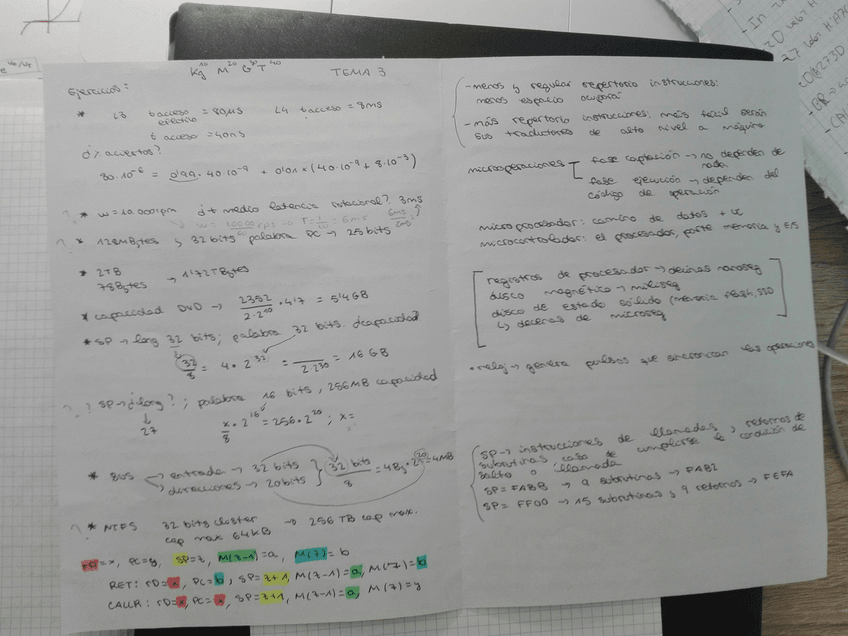 Kg¹⁰ M²⁰ G³⁰ T⁴⁰ TEMA 3
Ejercicios:
* L3 t acceso efectivo = 80µs L4 t acceso = 8ms
t acceso = 40ns
¿% aciertos?
80·10⁻⁶ = 0'99·40·10⁻⁹ + 0'01×(40·10⁻⁹ + 8·10⁻³)
? * w=10.000rpm ¿t medio latencia rotacional? 3ms
? * 128MBytes y 32 bits palabra PC → 25 bits
* 2TB
78Bytes → 1'72TBytes
* capacidad DVD → 2352/2·2¹⁰ · 4'7 = 5'4GB
* SP → long 32 bits; palabra 32 bits. ¿capacidad?
32/8 = 4·2³² = /2·2³⁰ = 16 GB
? ? SP → ¿long?; palabra 16 bits, 256MB capacidad
27 x/8 · 2¹⁶ = 256·2²⁰; x=
* BUS → entrada → 32 bits
→ direcciones → 20 bits } 32 bits/8 = 4By · 2²⁰ = 4MB
? * NTFS 32 bits cluster → 256 TB cap max.
cap max 64KB
rD=x, PC=y, SP=z, M(z-1)=a, M(z)=b
RET: rD=x, PC=b, SP=z+1, M(z-1)=a, M(z)=b
CALLR: rD=x, PC=x, SP=z+1, M(z-1)=a, M(z)=y
- menos y regular repertorio instrucciones:
menos espacio ocupará
- más repertorio instrucciones: más fácil serán
sus traductores de alto nivel a máquina
microoperaciones fase captación → no dependen de
nada
fase ejecución → dependen del
código de operación
microprocesador: camino de datos + UC
microcontrolador: el procesador, parte memoria y E/S
registros de procesador → decenas nanoseg
disco magnético → miliseg
disco de estado sólido (memoria flash, SSD
↳ decenas de microseg
* reloj → genera pulsos que sincronizan las operaciones
SP → instrucciones de llamadas y retornos de
subrutinas caso de cumplirse la condición de
salto o llamada
SP = FABB → 9 subrutinas → FAB2
SP = FF00 → 15 subrutinas y 9 retornos → FEFA